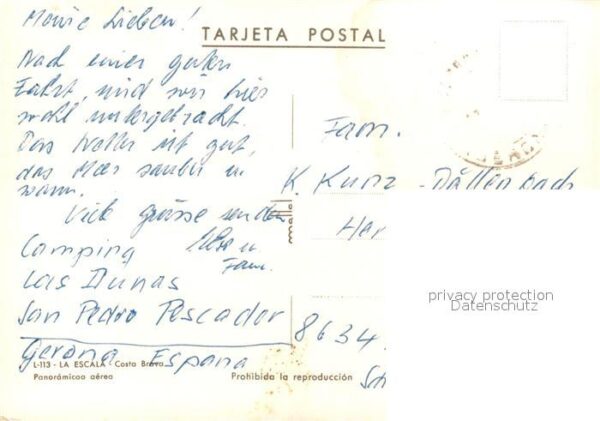 Meine Lieben!
TARJETA POSTAL
Nach einer guten
Fahrt, sind wir hier
wohl untergebracht.
Das Wetter ist gut,
das Meer sauber u
warm.
Viele grüsse senden
u
Fam.
Camping
Las Dunas
San Pedro Pescador
Gerona España
Fam.
K. Kunz - Dällenbach
8634
L-113 - LA ESCALA - Costa Brava
Panorámicoa aérea
Prohibida la reproducción
privacy protection
Datenschutz